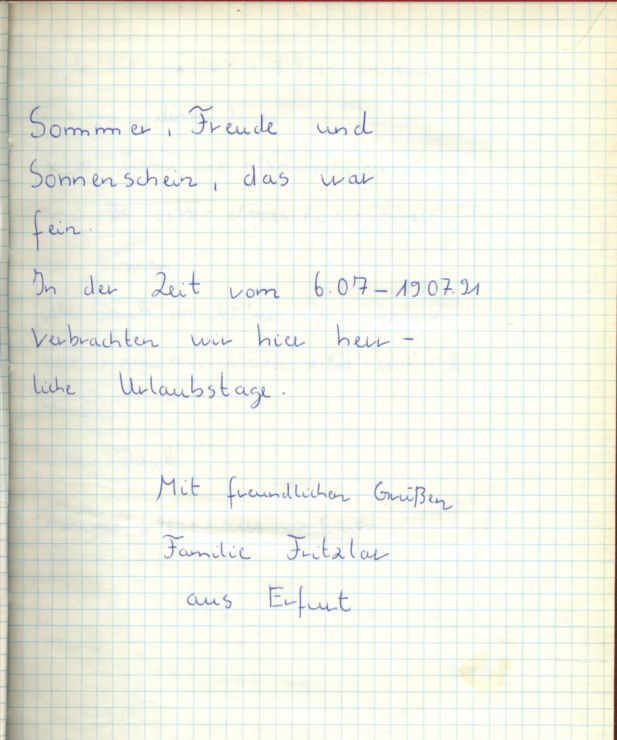 Sommer, Freude und
Sonnenschein, das war
fein.
In der Zeit vom 6.07-1907.91
verbrachten wir hier herr-
liche Urlaubstage.
Mit freundlichen Grüßen
Familie Fritzlar
aus Erfurt